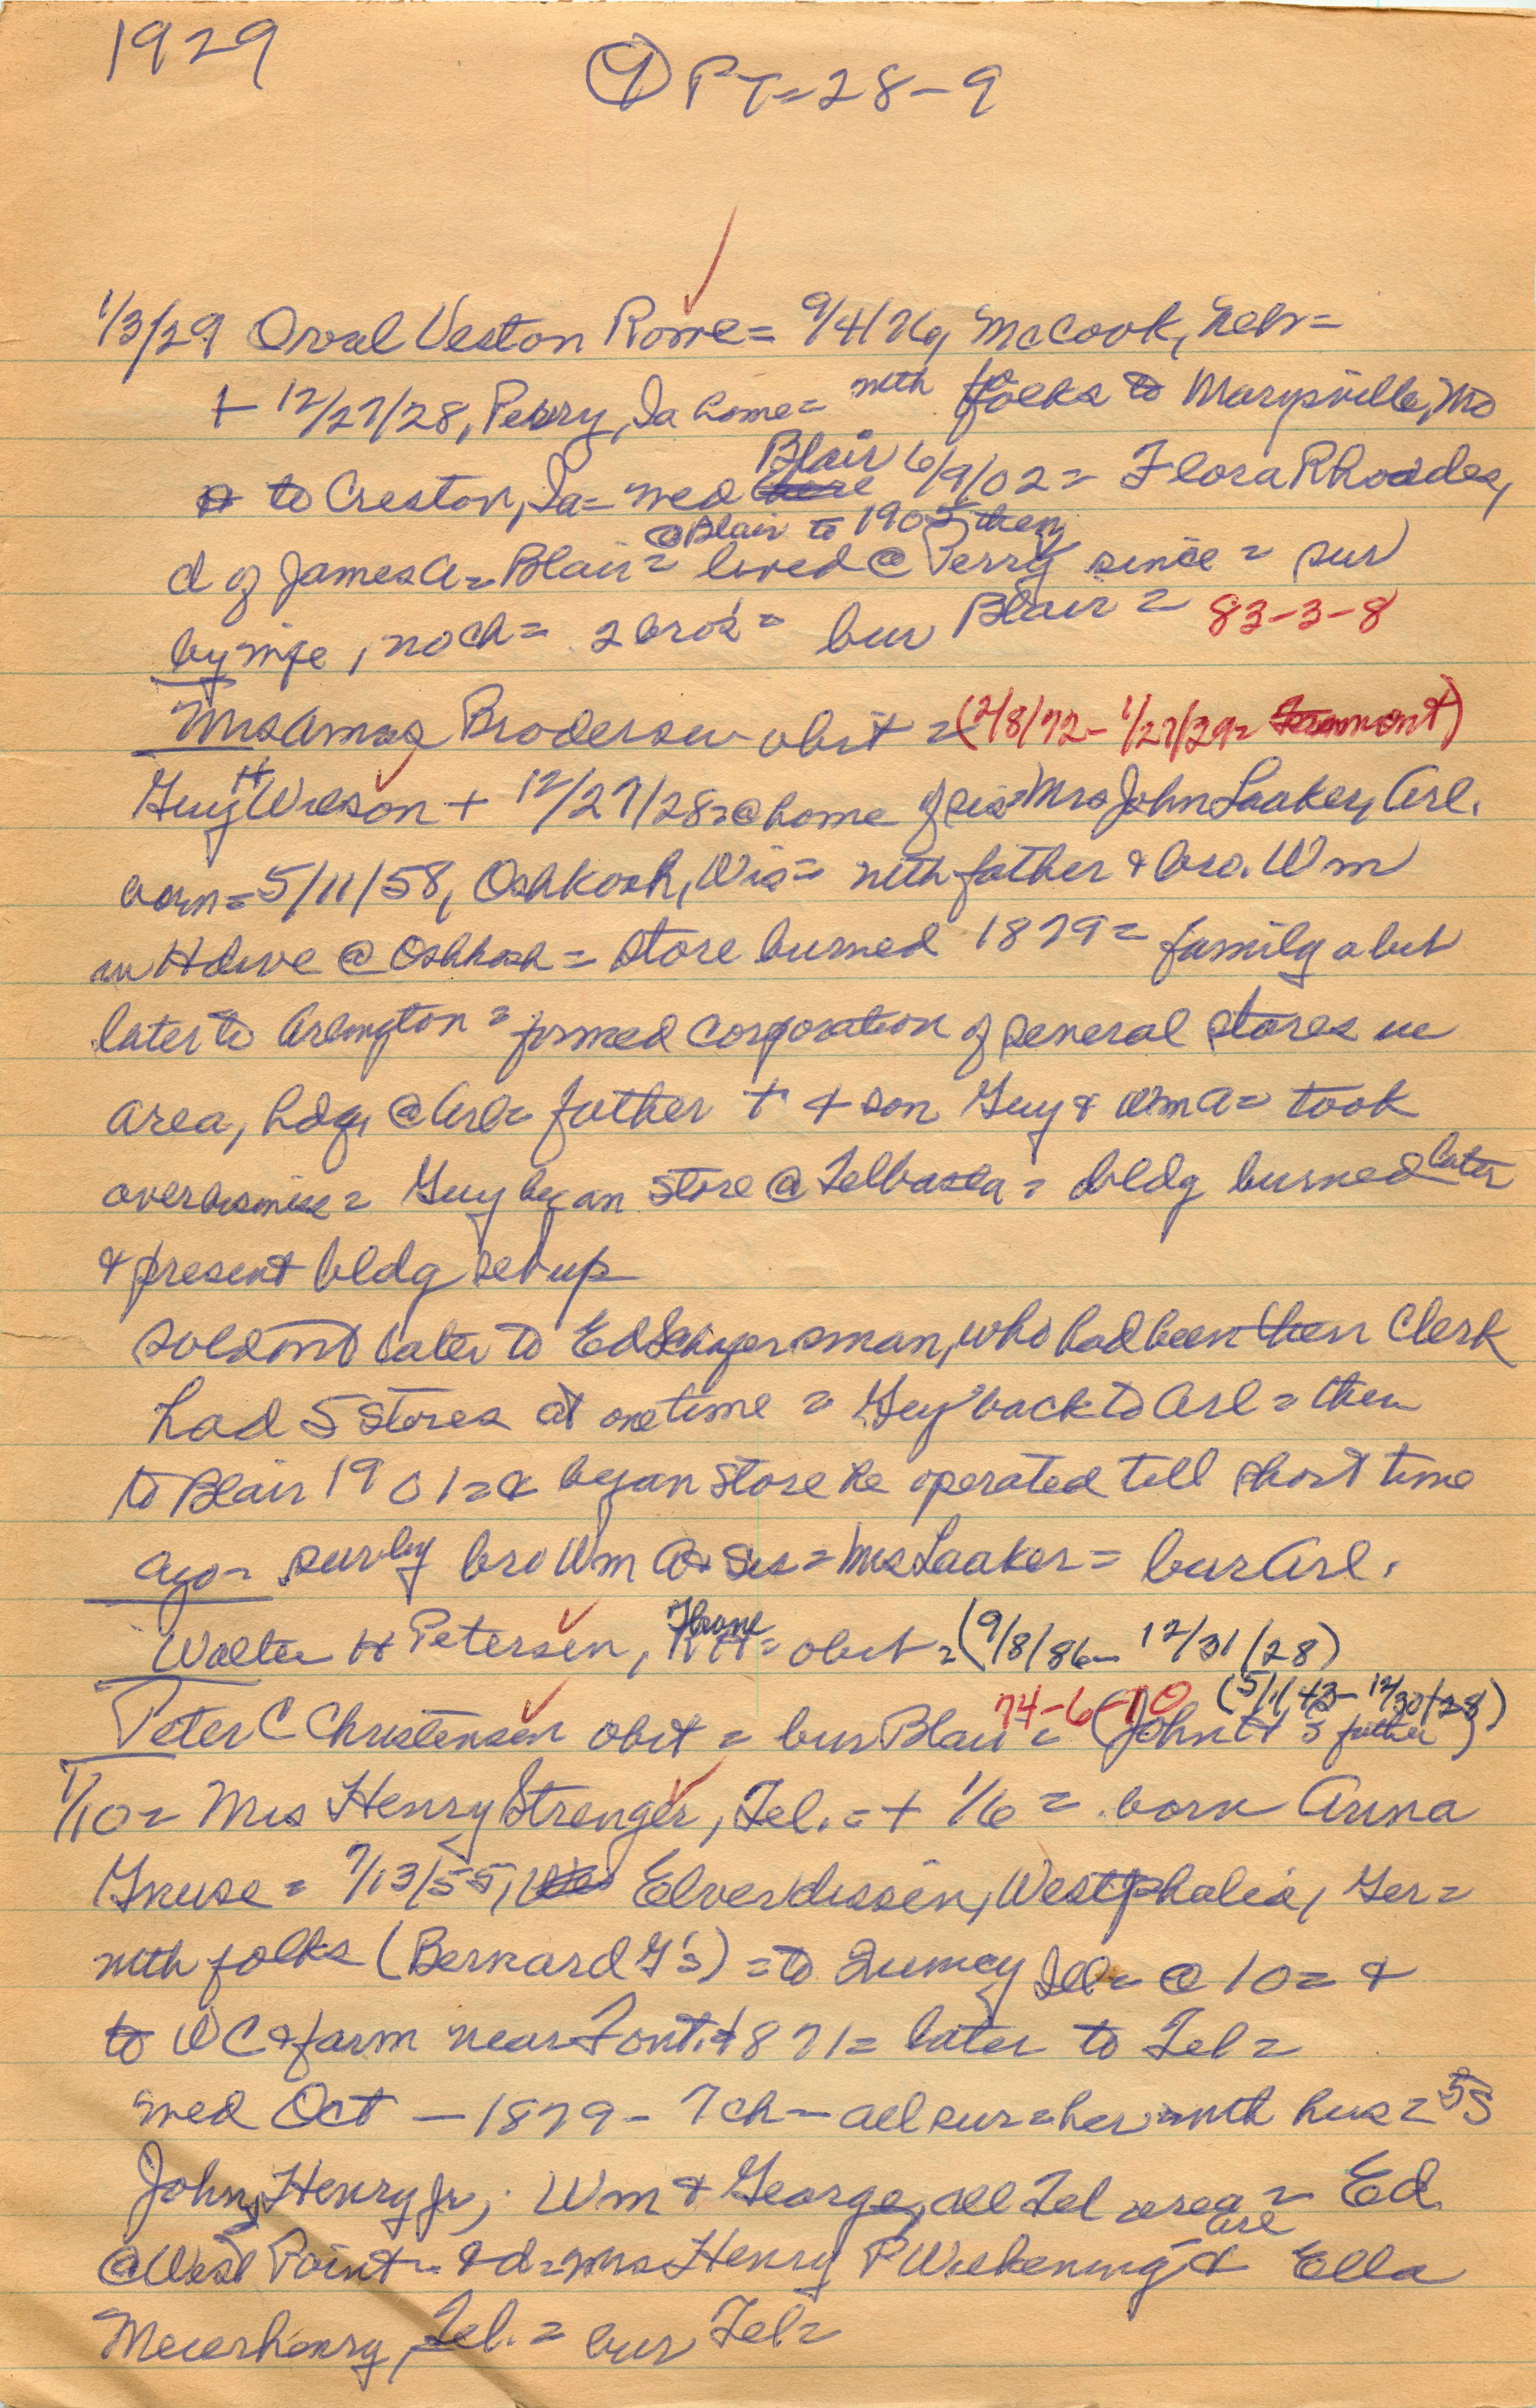 1929
④ PT = 28-9
1/3/29 Orval Veston Rowe = 9/4/76, McCook, Nebr =
+ 12/27/28, Perry, Ia home = with folks to Marysville, Mo
to Creston, Ia = med Blair 6/9/02 = Flora Rhoades,
@ Blair to 1905, then
d of James A = Blair = lived @ Perry since = sur
by wife, no ch = 2 bros = bur Blair = 83-3-8
Mrs Amos Brodersen obit = (2/8/72 - 1/27/29 =
Guy H Wilson + 12/27/28 = @ home of sis Mrs John Laaker, Arl.
born = 5/11/58, Oshkosh, Wis = with father & bro. Wm
in Hdwe @ Oshkosh = store burned 1879 = family a bit
later to Arlington = formed corporation of general stores in
area, hdq, @ Arl = father + & son Guy & Wm A = took
over business = Guy began store @ Telbasta = bldg burned later
& present bldg set up
sold out later to Ed Schafersman, who had been their clerk
had 5 stores at one time = Guy back to Arl = then
to Blair 1901 = & began store he operated till short time
ago = sur by bro Wm A & sis = Mrs Laaker = bur Arl.
Walter H Petersen, obit = (9/8/86 - 12/31/28)
Peter C Christensen obit = bur Blair = 74-6-10 (5/1/43 - 12/30/28) (John H's father)
1/10 = Mrs Henry Strenger, Tel. = + 1/6 = born Anna
Gruse = 7/13/55, Elverdissen, Westphalia, Ger =
with folks (Bernard G's) = to Quincy Ill = @ 10 = &
to WC & farm near Font. 1871 = later to Tel =
med Oct - 1879 - 7 ch - all sur = her with hus = 5 S
John, Henry Jr, ; Wm & George, all Tel area = Ed
@ West Point - & d = Mrs Henry P Wiekening Arl & Ella
Meierhenry, Tel. = bur Tel =